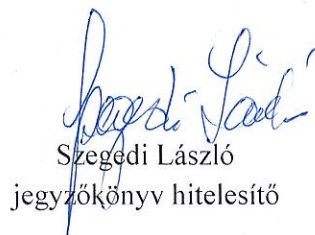 Szegedi László
Szegedi László
jegyzőkönyv hitelesítő